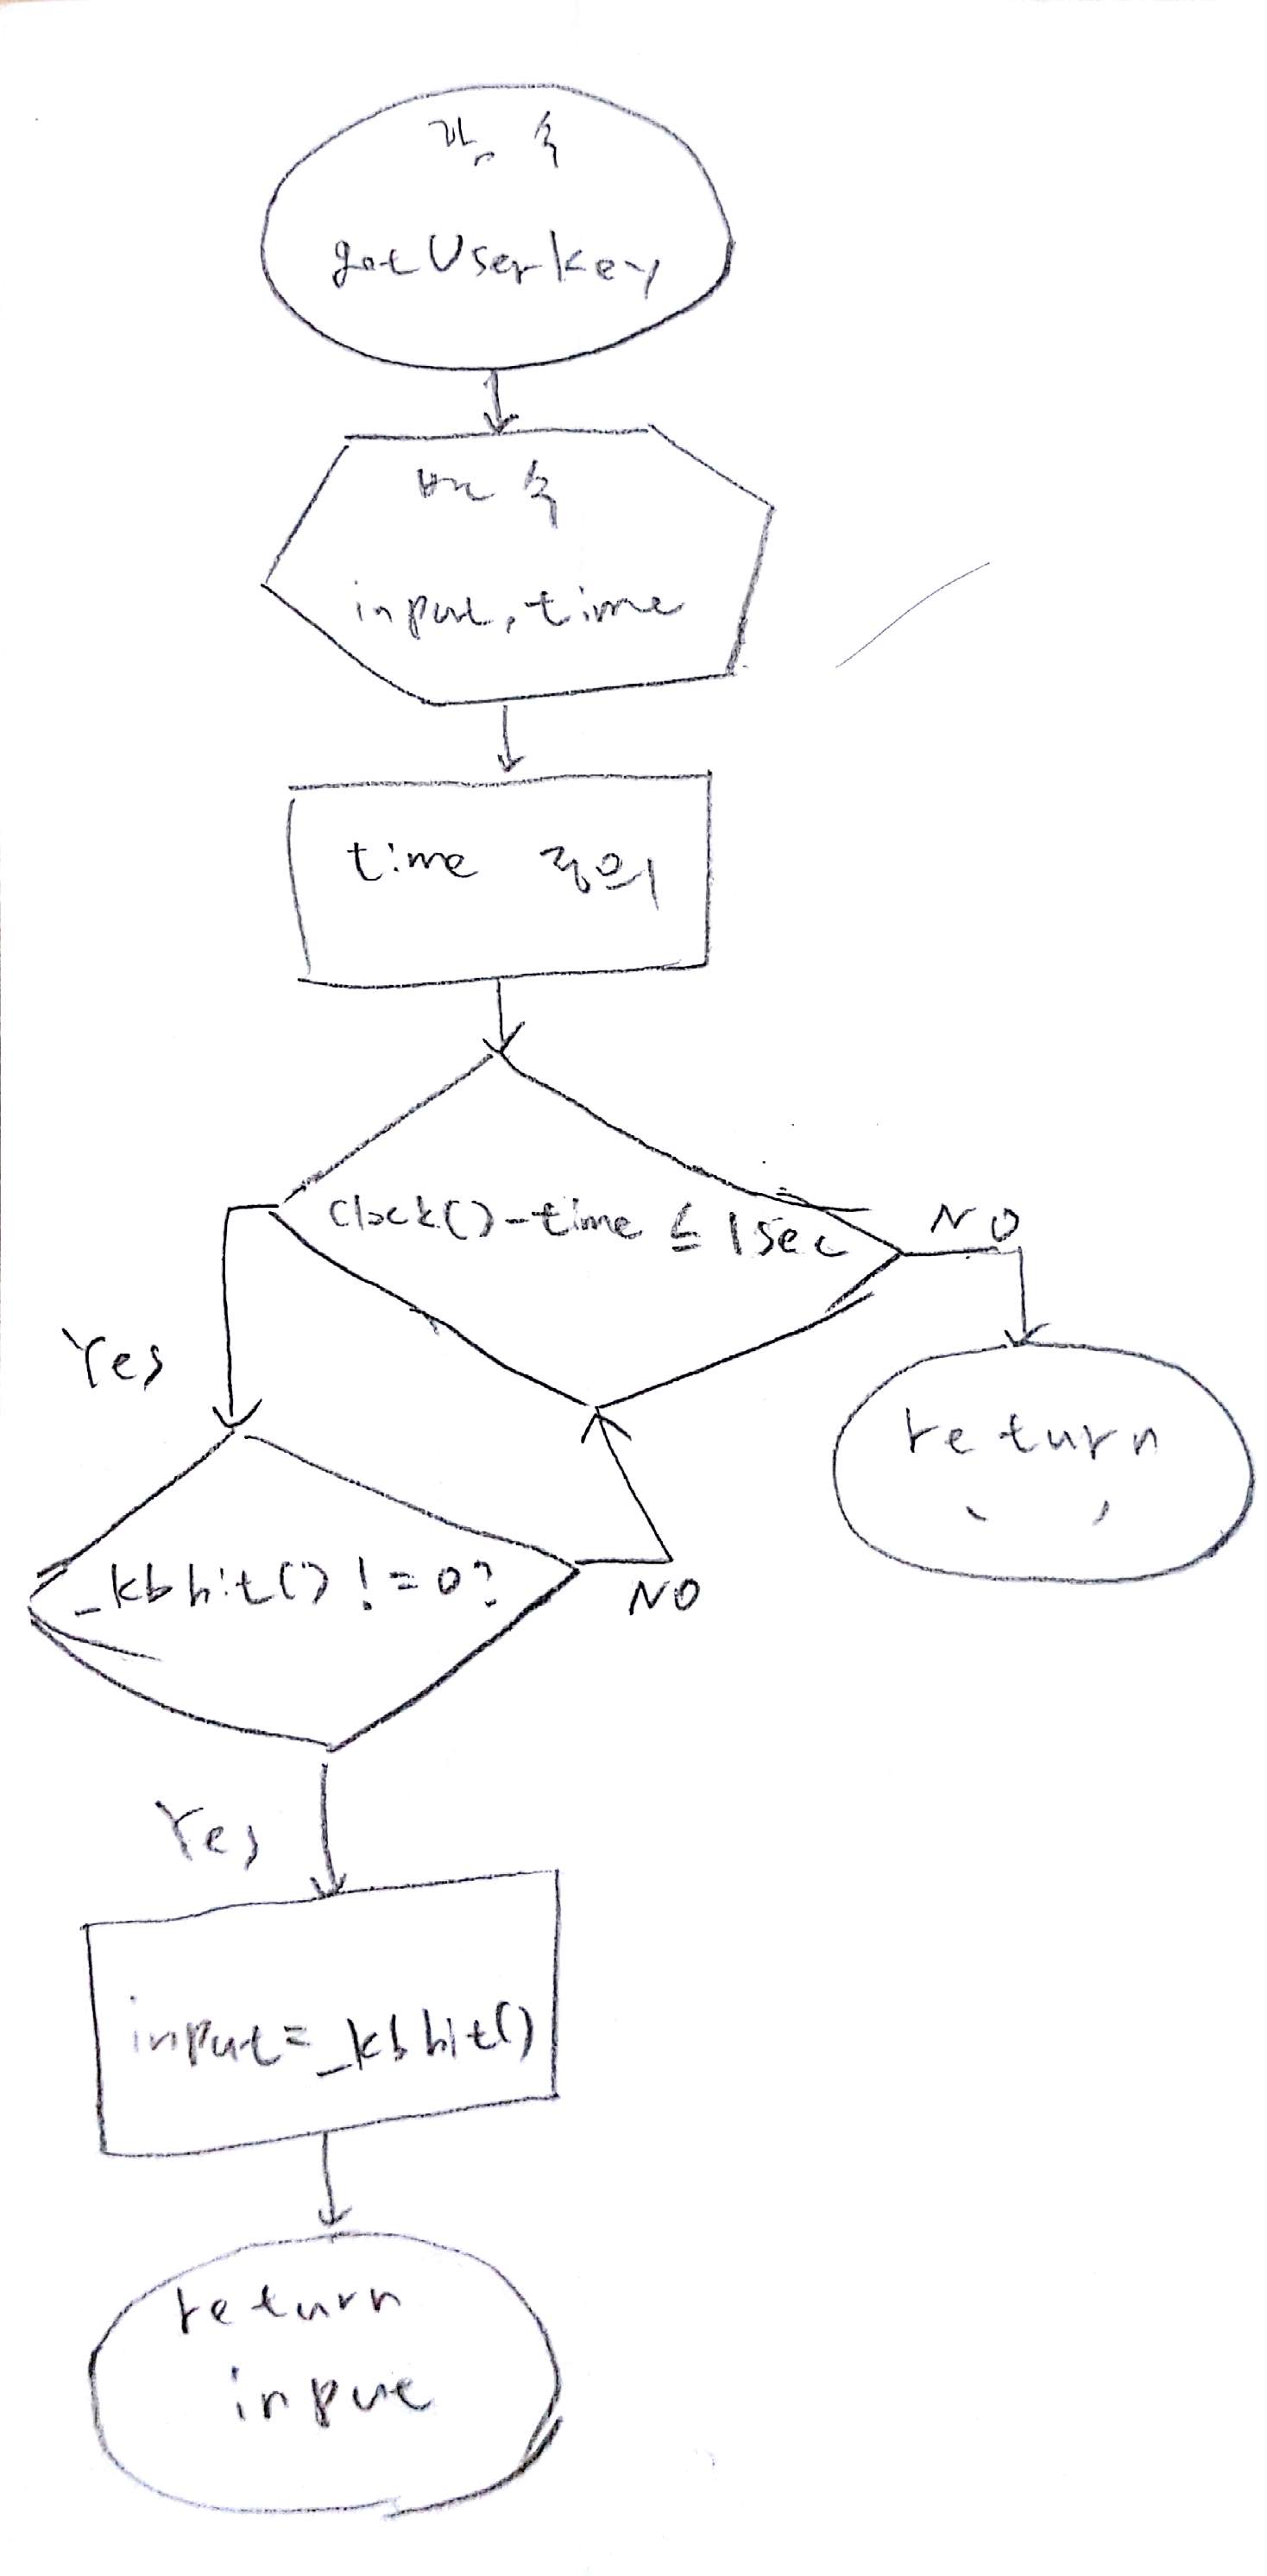 함수
getUserkey
변수
input, time
time 정의
clock()-time ≤ 1sec
NO
Yes
return
' '
_kbhit() != 0?
NO
Yes
input=_kbhit()
return
input